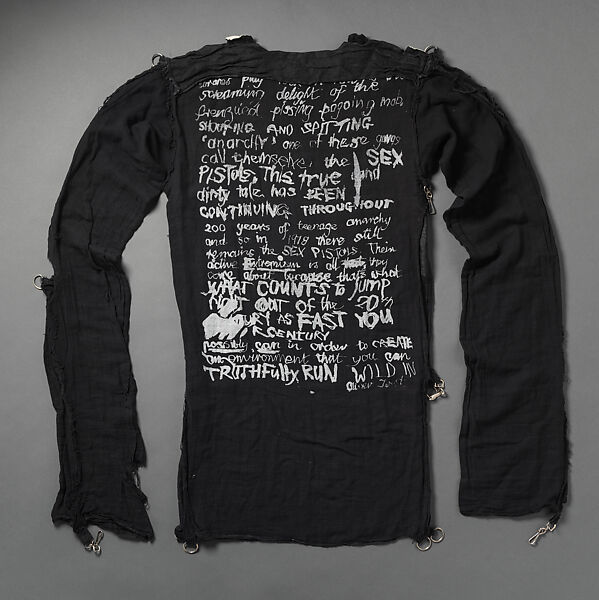 play
screaming delight of the
frenzied pissing pogoing mob,
SHOUTING AND SPITTING
"anarchy" one of these gangs
call themselves the SEX
PISTOLS, This true and
dirty tale has BEEN
CONTINUING THROUGHOUT
200 years of teenage anarchy
and so in 1978 there still
remains the SEX PISTOLS. Their
active Extremism is all they
care about because that's what
WHAT COUNTS to JUMP
OUT OF the 20th
AS FAST YOU
CENTURY
possibly can in order to CREATE
an environment that you can
TRUTHFULLY RUN WILD IN